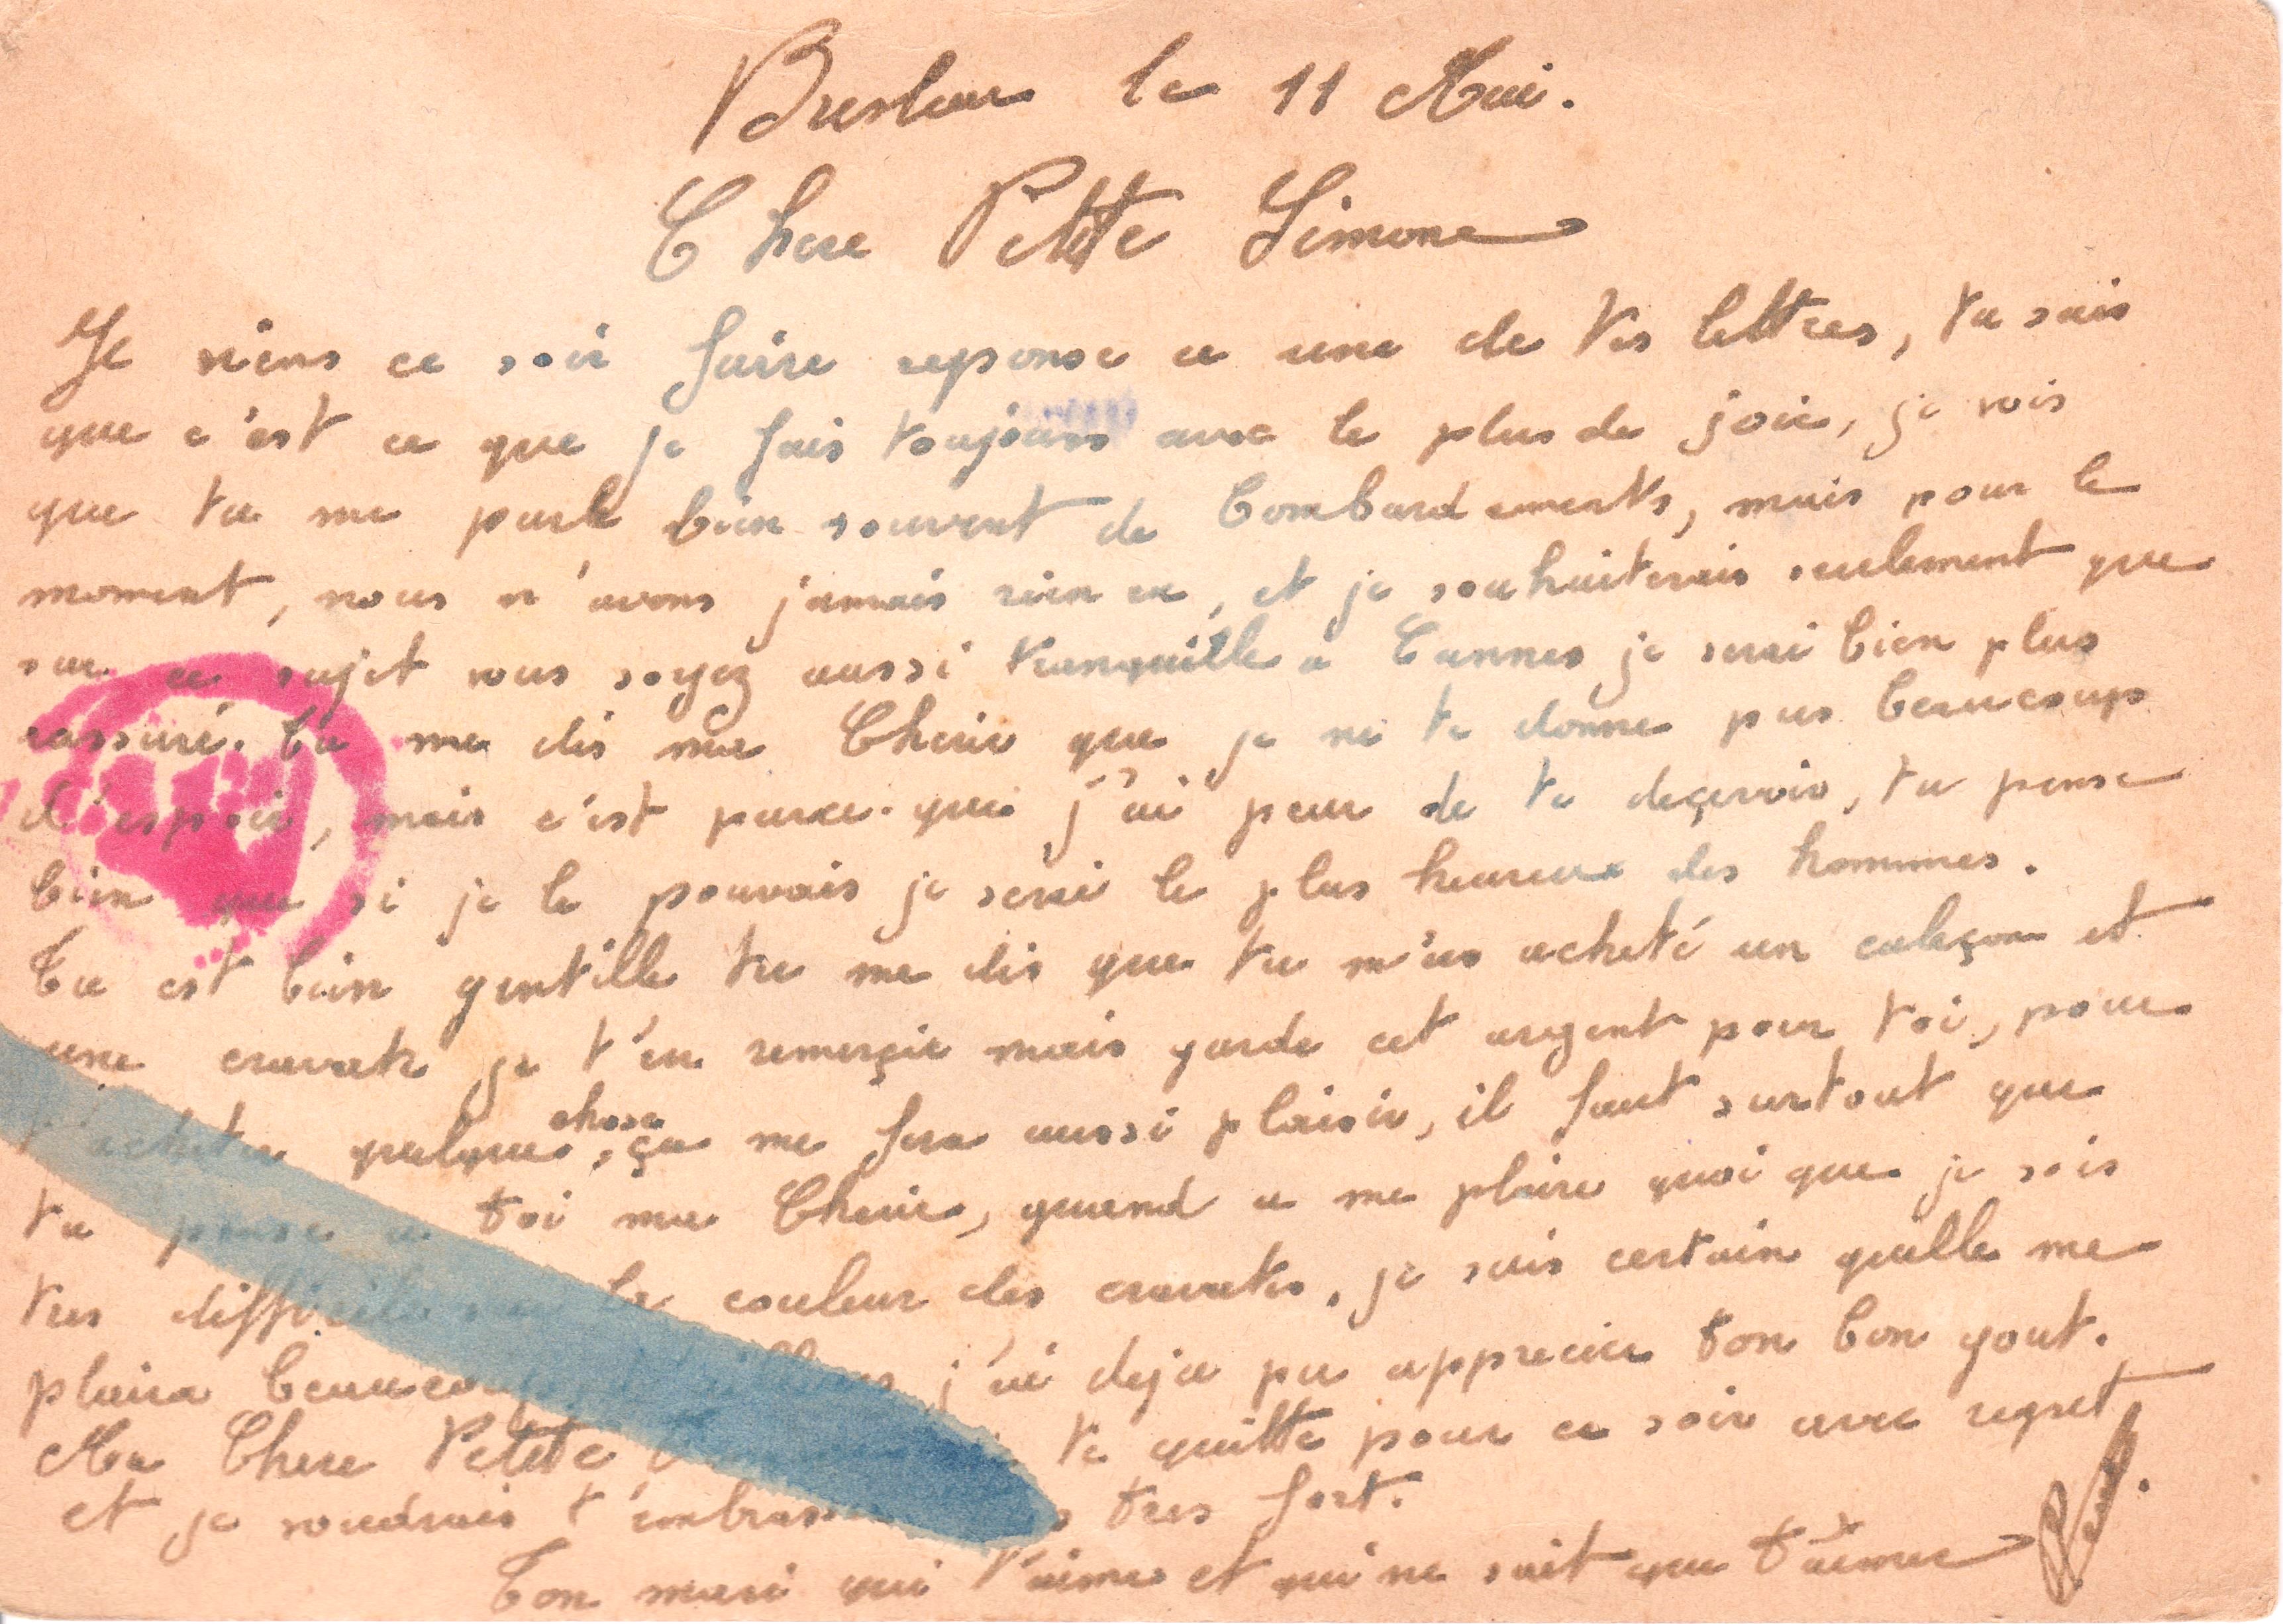 Breslau le 11 Mai.
Chere Petite Simone
Je viens ce soir faire reponse a une de tes lettres, tu sais
que c'est ce que je fais toujours avec le plus de joie, je vois
que tu me parle bien souvent de bombardements, mais pour le
moment, nous n'avons jamais rien eu, et je souhaiterais seulement que
sur ce sujet vous soyez aussi tranquille a Cannes je serai bien plus
rassuré. Tu me dis ma Cherie que je ne te donne pas beaucoup
d'espoir, mais c'est parce-que j'ai peur de te deçevoir, tu pense
bien que si je le pouvais je serai le plus heureux des hommes.
Tu est bien gentille tu me dis que tu m'as acheté un caleçon et
une cravate je t'en remerçie mais garde cet argent pour toi, pour
t'acheter quelque chose, ça me fera aussi plaisir, il faut surtout que
tu pense a toi ma Cherie, quand a me plaire quoi que je sois
tres difficile sur la couleur des cravates, je suis certain qu'elle me
plaira beaucoup, d'ailleurs j'ai deja pu apprecier ton bon gout.
Ma Chere Petite te quitte pour ce soir avec regret
et je voudrais t'embrasser tres fort.
Ton mari qui t'aime et qui ne sait que t'aimer